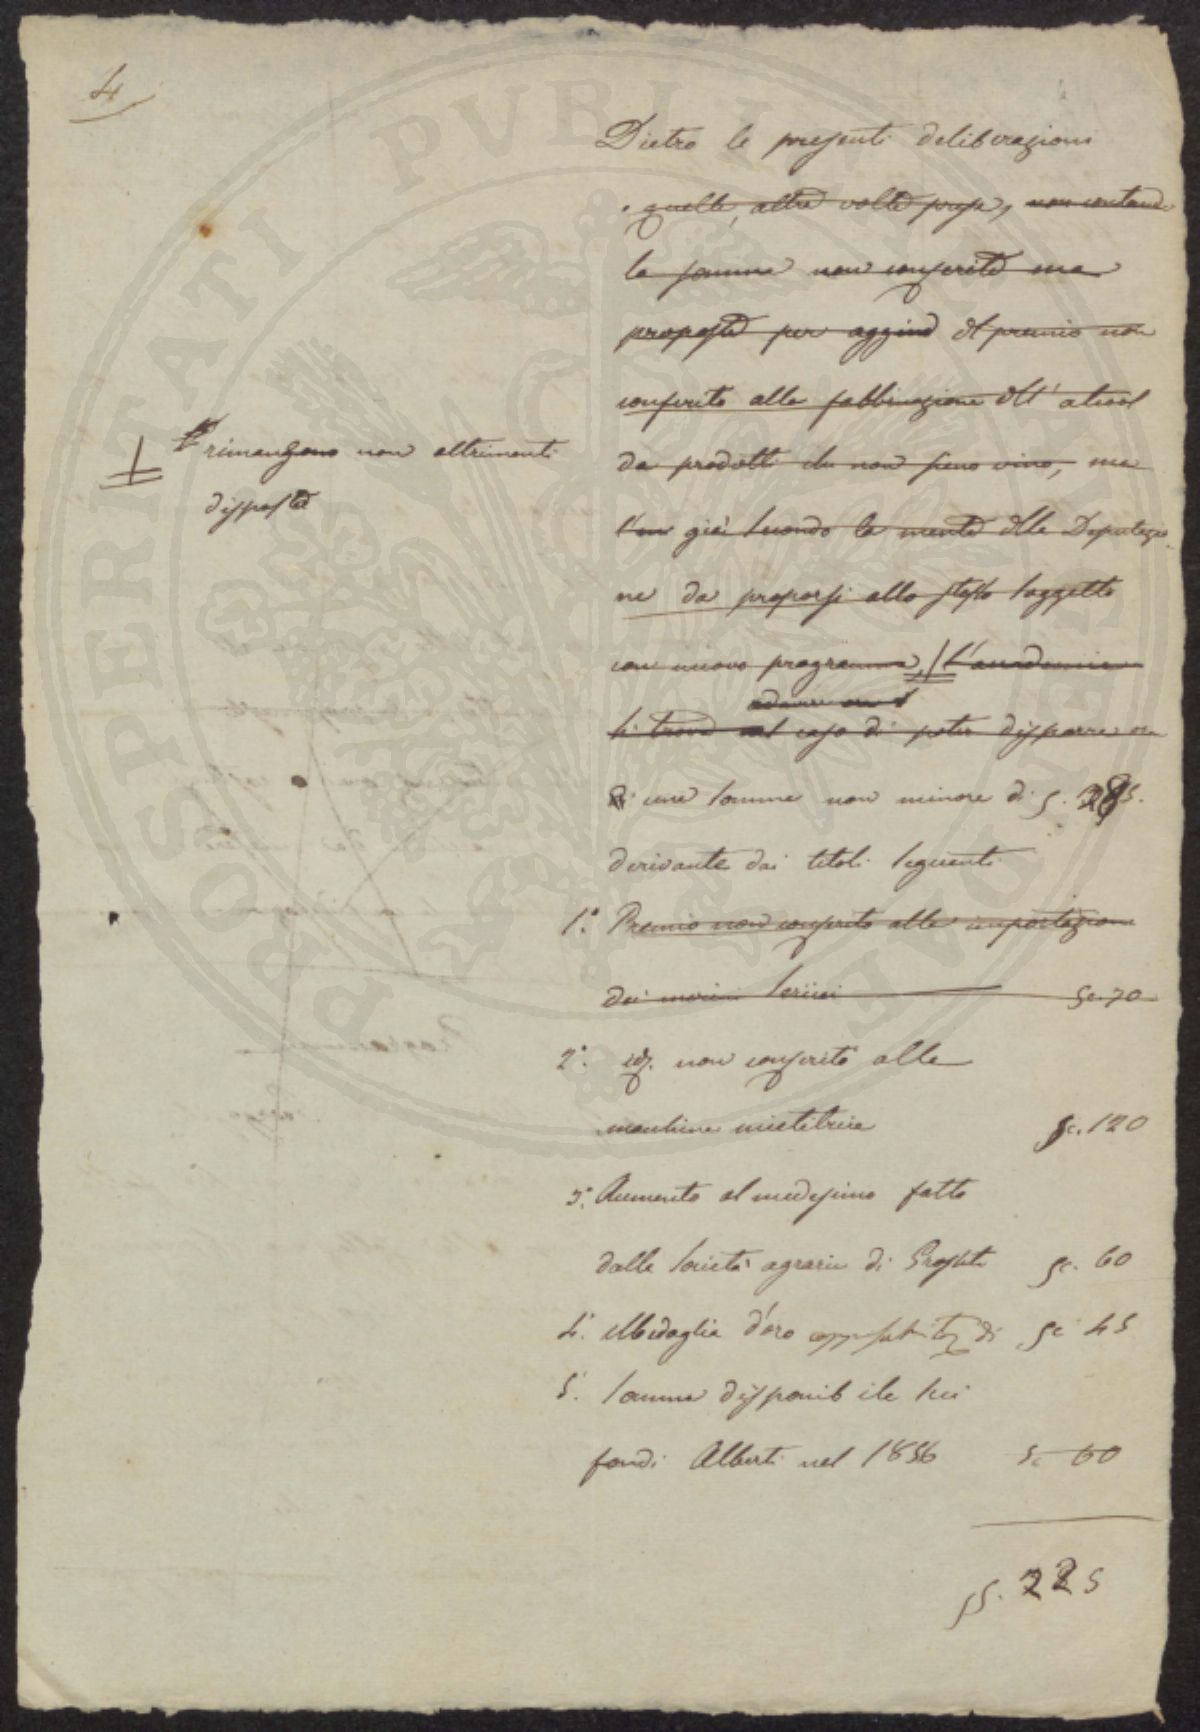 4
Dietro le presenti deliberazioni
e quelle altre volte prese, non contando
la somma non conferita ma
proposta per aggiunta al premio non
conferito alla fabbricazione dell'alcool
da prodotti che non sieno vino, ma
già secondo la mente della Deputazio-
ne da proporsi allo stesso soggetto
con nuovo programma, // l'accademia
si trova nel caso di poter disporre
una somma non minore di S. 285.
derivante dai titoli seguenti
1.° Premio non conferito alla importazione
dei Sc. 70
2.° id. non conferito alla
macchina mietitrice Sc. 120
3.° Aumento al medesimo fatto
dalla Società agraria di Sc. 60
4.° Medaglia d'oro di Sc 45
5.° Somma disponibile sui
fondi Alberti nel 1856 Sc 60
S. 225
rimangono non altrimenti
disposte
PROSPERITATI PUBLICAE